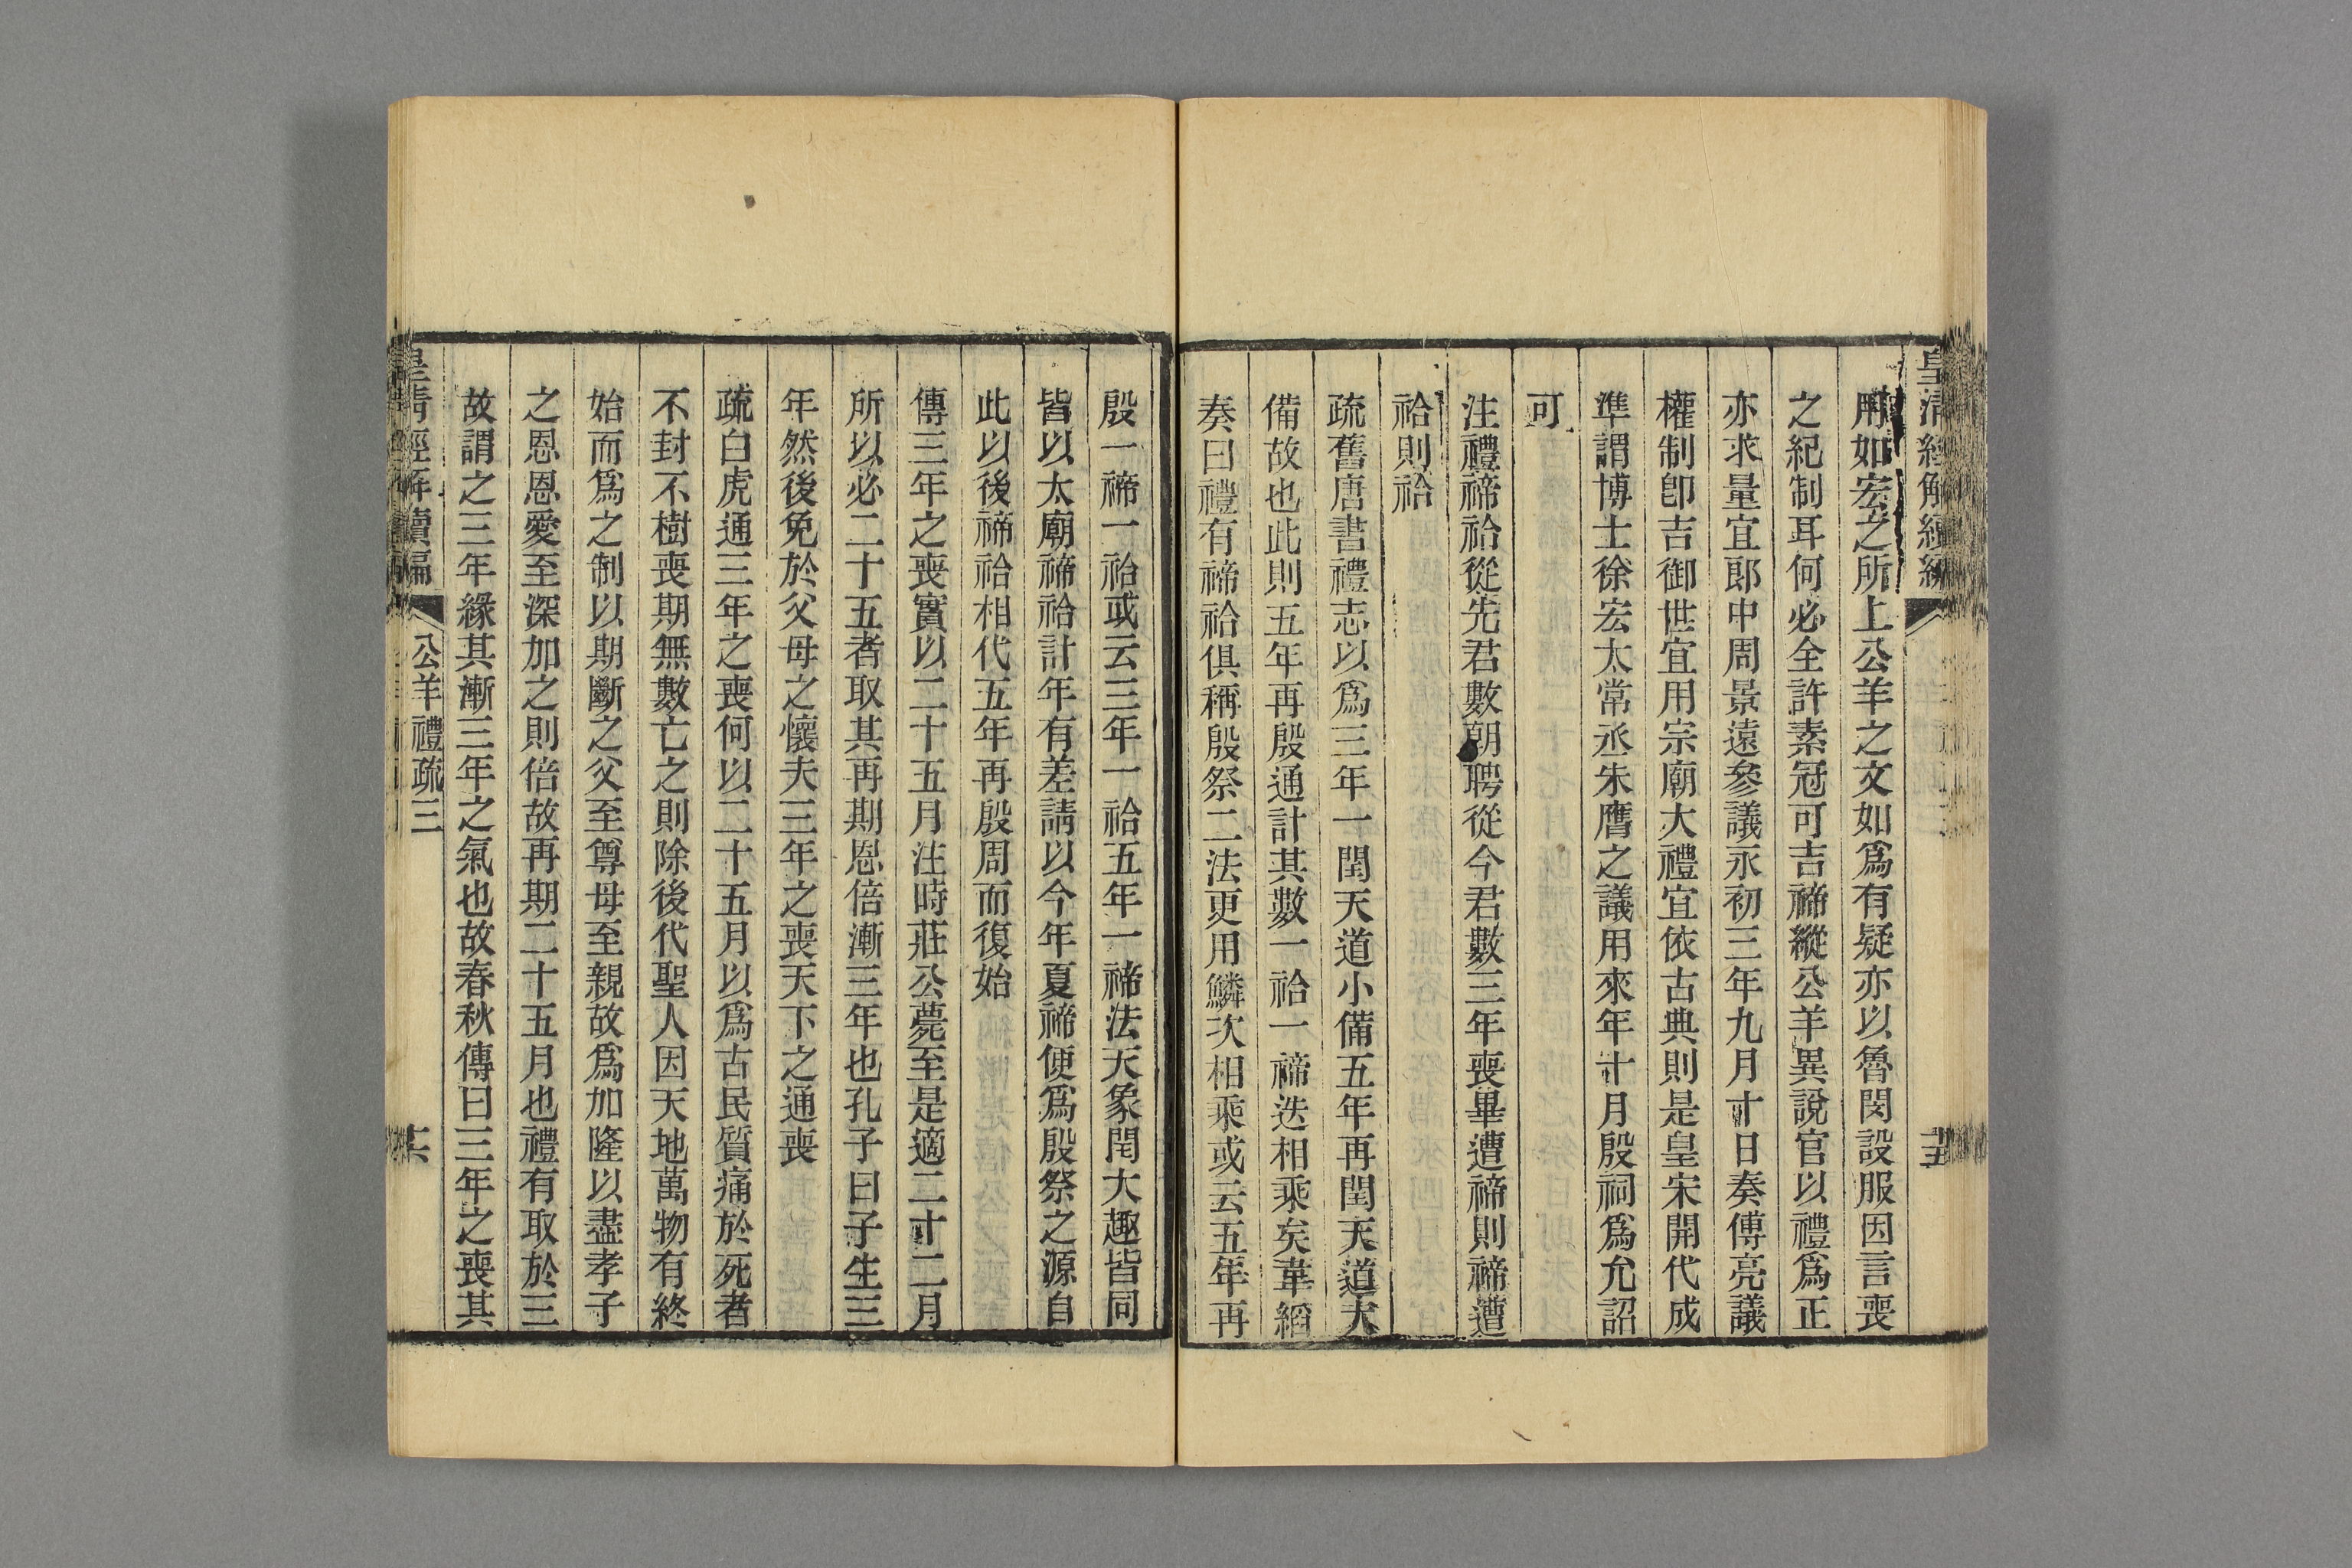 皇清經解續編
用如宏之所上公羊之文如爲有疑亦以魯閔設服因言喪
之紀制耳何必全許素冠可吉禘縱公羊異說官以禮爲正
亦求量宜郎中周景遠參議永初三年九月十日奏傅亮議
權制卽吉御世宜用宗廟大禮宜依古典則是皇宋開代成
準謂博士徐宏太常丞朱膺之議用來年十月殷祠爲允詔
可
注禮禘祫從先君數朝聘從今君數三年喪畢遭禘則禘遭
祫則祫
疏舊唐書禮志以爲三年一閏天道小備五年再閏天道大
備故也此則五年再殷通計其數一祫一禘迭相乘矣韋縚
奏曰禮有禘祫俱稱殷祭二法更用鱗次相乘或云五年再
殷一禘一祫或云三年一祫五年一禘法天象閏大趣皆同
皆以太廟禘祫計年有差請以今年夏禘便爲殷祭之源自
此以後禘祫相代五年再殷周而復始
傳三年之喪實以二十五月注時莊公薨至是適二十二月
所以必二十五者取其再期恩倍漸三年也孔子曰子生三
年然後免於父母之懷夫三年之喪天下之通喪
疏白虎通三年之喪何以二十五月以爲古民質痛於死者
不封不樹喪期無數亡之則除後代聖人因天地萬物有終
始而爲之制以期斷之父至尊母至親故爲加隆以盡孝子
之恩恩愛至深加之則倍故再期二十五月也禮有取於三
故謂之三年緣其漸三年之氣也故春秋傳曰三年之喪其
皇清經解續編
公羊禮疏三